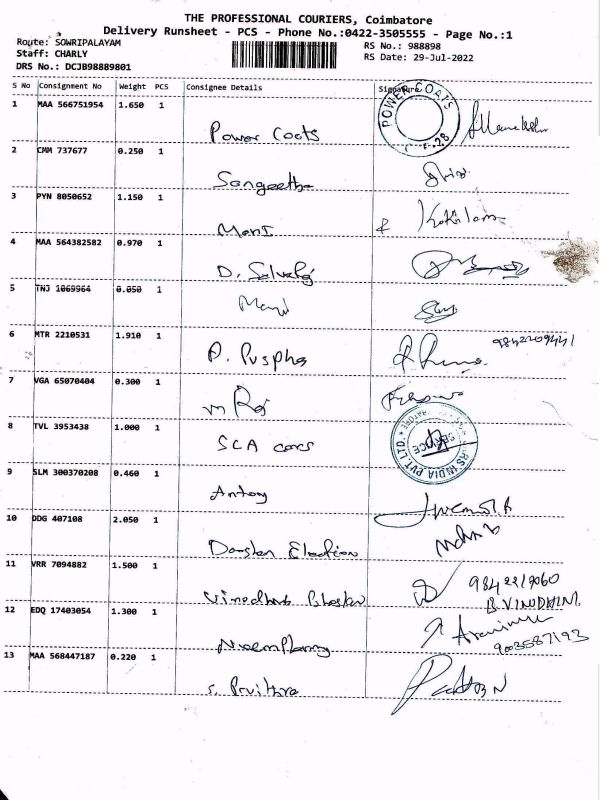 THE PROFESSIONAL COURIERS, Coimbatore
Delivery Runsheet - PCS - Phone No.:0422-3505555 - Page No.:1
Route: SOWRIPALAYAM
Staff: CHARLY
DRS No.: DCJB98889801
RS No.: 988898
RS Date: 29-Jul-2022
S No Consignment No Weight PCS Consignee Details Signature
POWER COATS
1 MAA 566751954 1.650 1
Power Coats
2 CMM 737677 0.250 1
Sangeetha
3 PYN 8050652 1.150 1
Mani Kokilam
4 MAA 564382582 0.970 1
D. Selvaraj
5 TNJ 1069964 0.050 1
Mani
6 MTR 2210531 1.910 1
9842209441
P. Puspha
7 VGA 65070404 0.300 1
m Raj
8 TVL 3953438 1.000 1
SCA cars
INDIA PVT. LTD.
SERVICE
9 SLM 300370208 0.460 1
Antony
10 DDG 407108 2.050 1
11 VRR 7094882 1.500 1
9842219060
Vinodhini Bhaskar B. VINODHINI
12 EDQ 17403054 1.300 1
9003587193
13 MAA 568447187 0.220 1
S. Pavithra